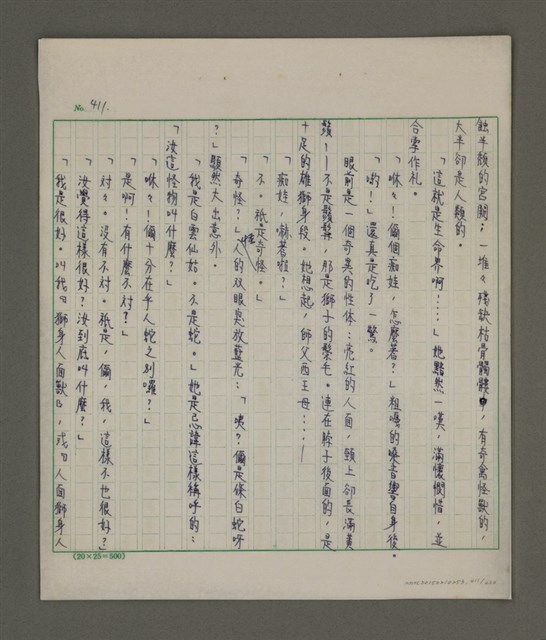 No. 411.
蝕半頹的宮闕；一堆々殘缺枯骨髑髏中，有奇禽怪獸的，
大半卻是人類的。
「這就是生命界啊？……」她黯然一嘆，滿懷憫惜，並
合掌作礼。
「咻々！倆個痴娃，怎麼著？」粗嘎的嗓音響自身後。
「喲！」還真是吃了一驚。
眼前是一個奇異的性体：亮紅的人面，頭上卻長滿黃
鬚──不是鬚髮，那是獅子的鬃毛。連在脖子後面的，是
十足的雄獅身段。她想起，師父西王母……
「痴娃，嚇著啦？」
「不。祇是奇怪。」
「奇怪？」怪人的双眼臭放藍光：「咦？倆是條白蛇呀
？」顯然大出意外。
「我是白雲仙姑。不是蛇。」她是忌諱這樣稱呼的：
「汝這怪物叫什麼？」
「咻々！倆十分在乎人蛇之別囉？」
「是啊！有什麼不对？」
「对々。沒有不对。祇是，倆，我，這樣不也很好？」
「汝覺得這樣很好？汝到底叫什麼？」
「我是很好。叫我『獅身人面獸』，或『人面獅身人
(20×25=500)